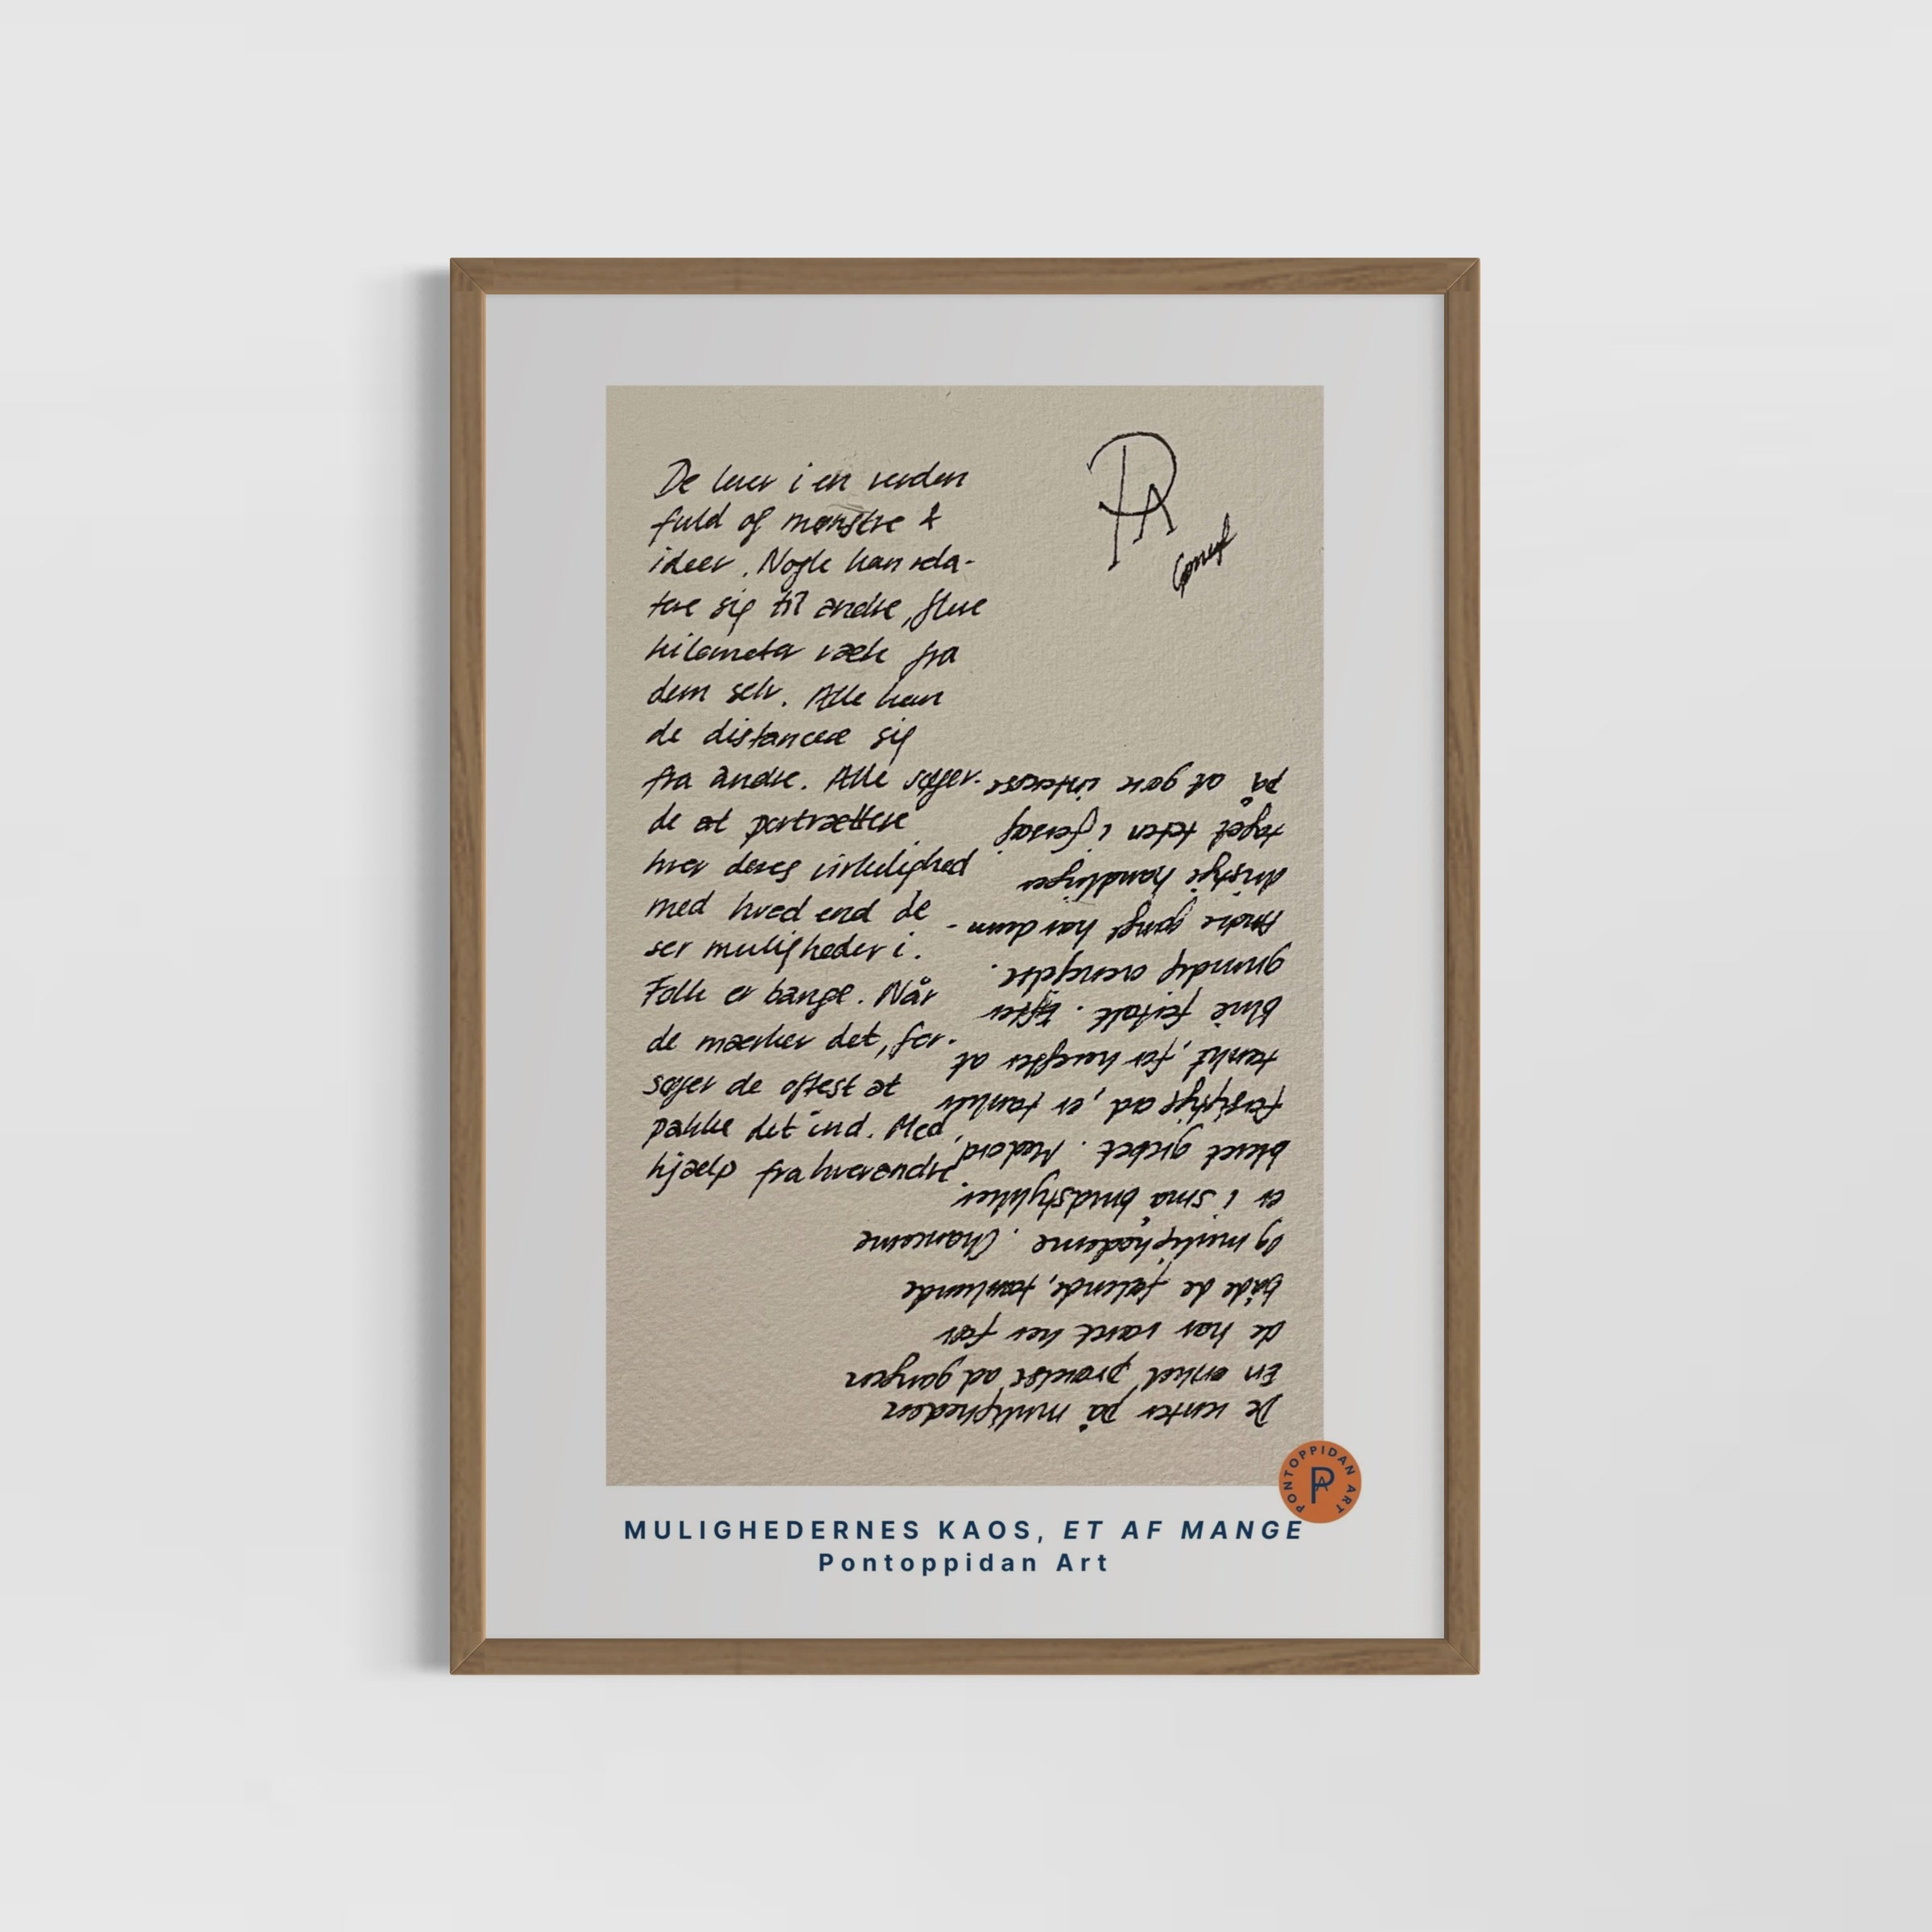 De lever i en verden
fuld af mønstre &
ideer. Nogle kan rela-
tere sig til andre, flere
kilometer væk fra
dem selv. Alle kan
de distancere sig
fra andre. Alle søger
de at portrættere
hver deres virkelighed
med hvad end de
ser muligheder i.
Folk er bange. Når
de mærker det, for-
søger de oftest at
pakke det ind. Med
hjælp fra hverandre.
De venter på muligheden
En enkel prøvelse ad gangen
de har været her før
både de følende, tænkende
Og mulighederne. Chancerne
er i små brudstykker
blevet grebet. Med ord,
forsigtige ad, er tanker
tænkt, før herefter at
blive fortalt. Efter
grundig overvejelse.
Andre gange har dum-
dristige handlinger
taget teten i forsøg
på at gøre interesse
PA
MULIGHEDERNES KAOS, ET AF MANGE
Pontoppidan Art
PONTOPPIDAN ART
PA